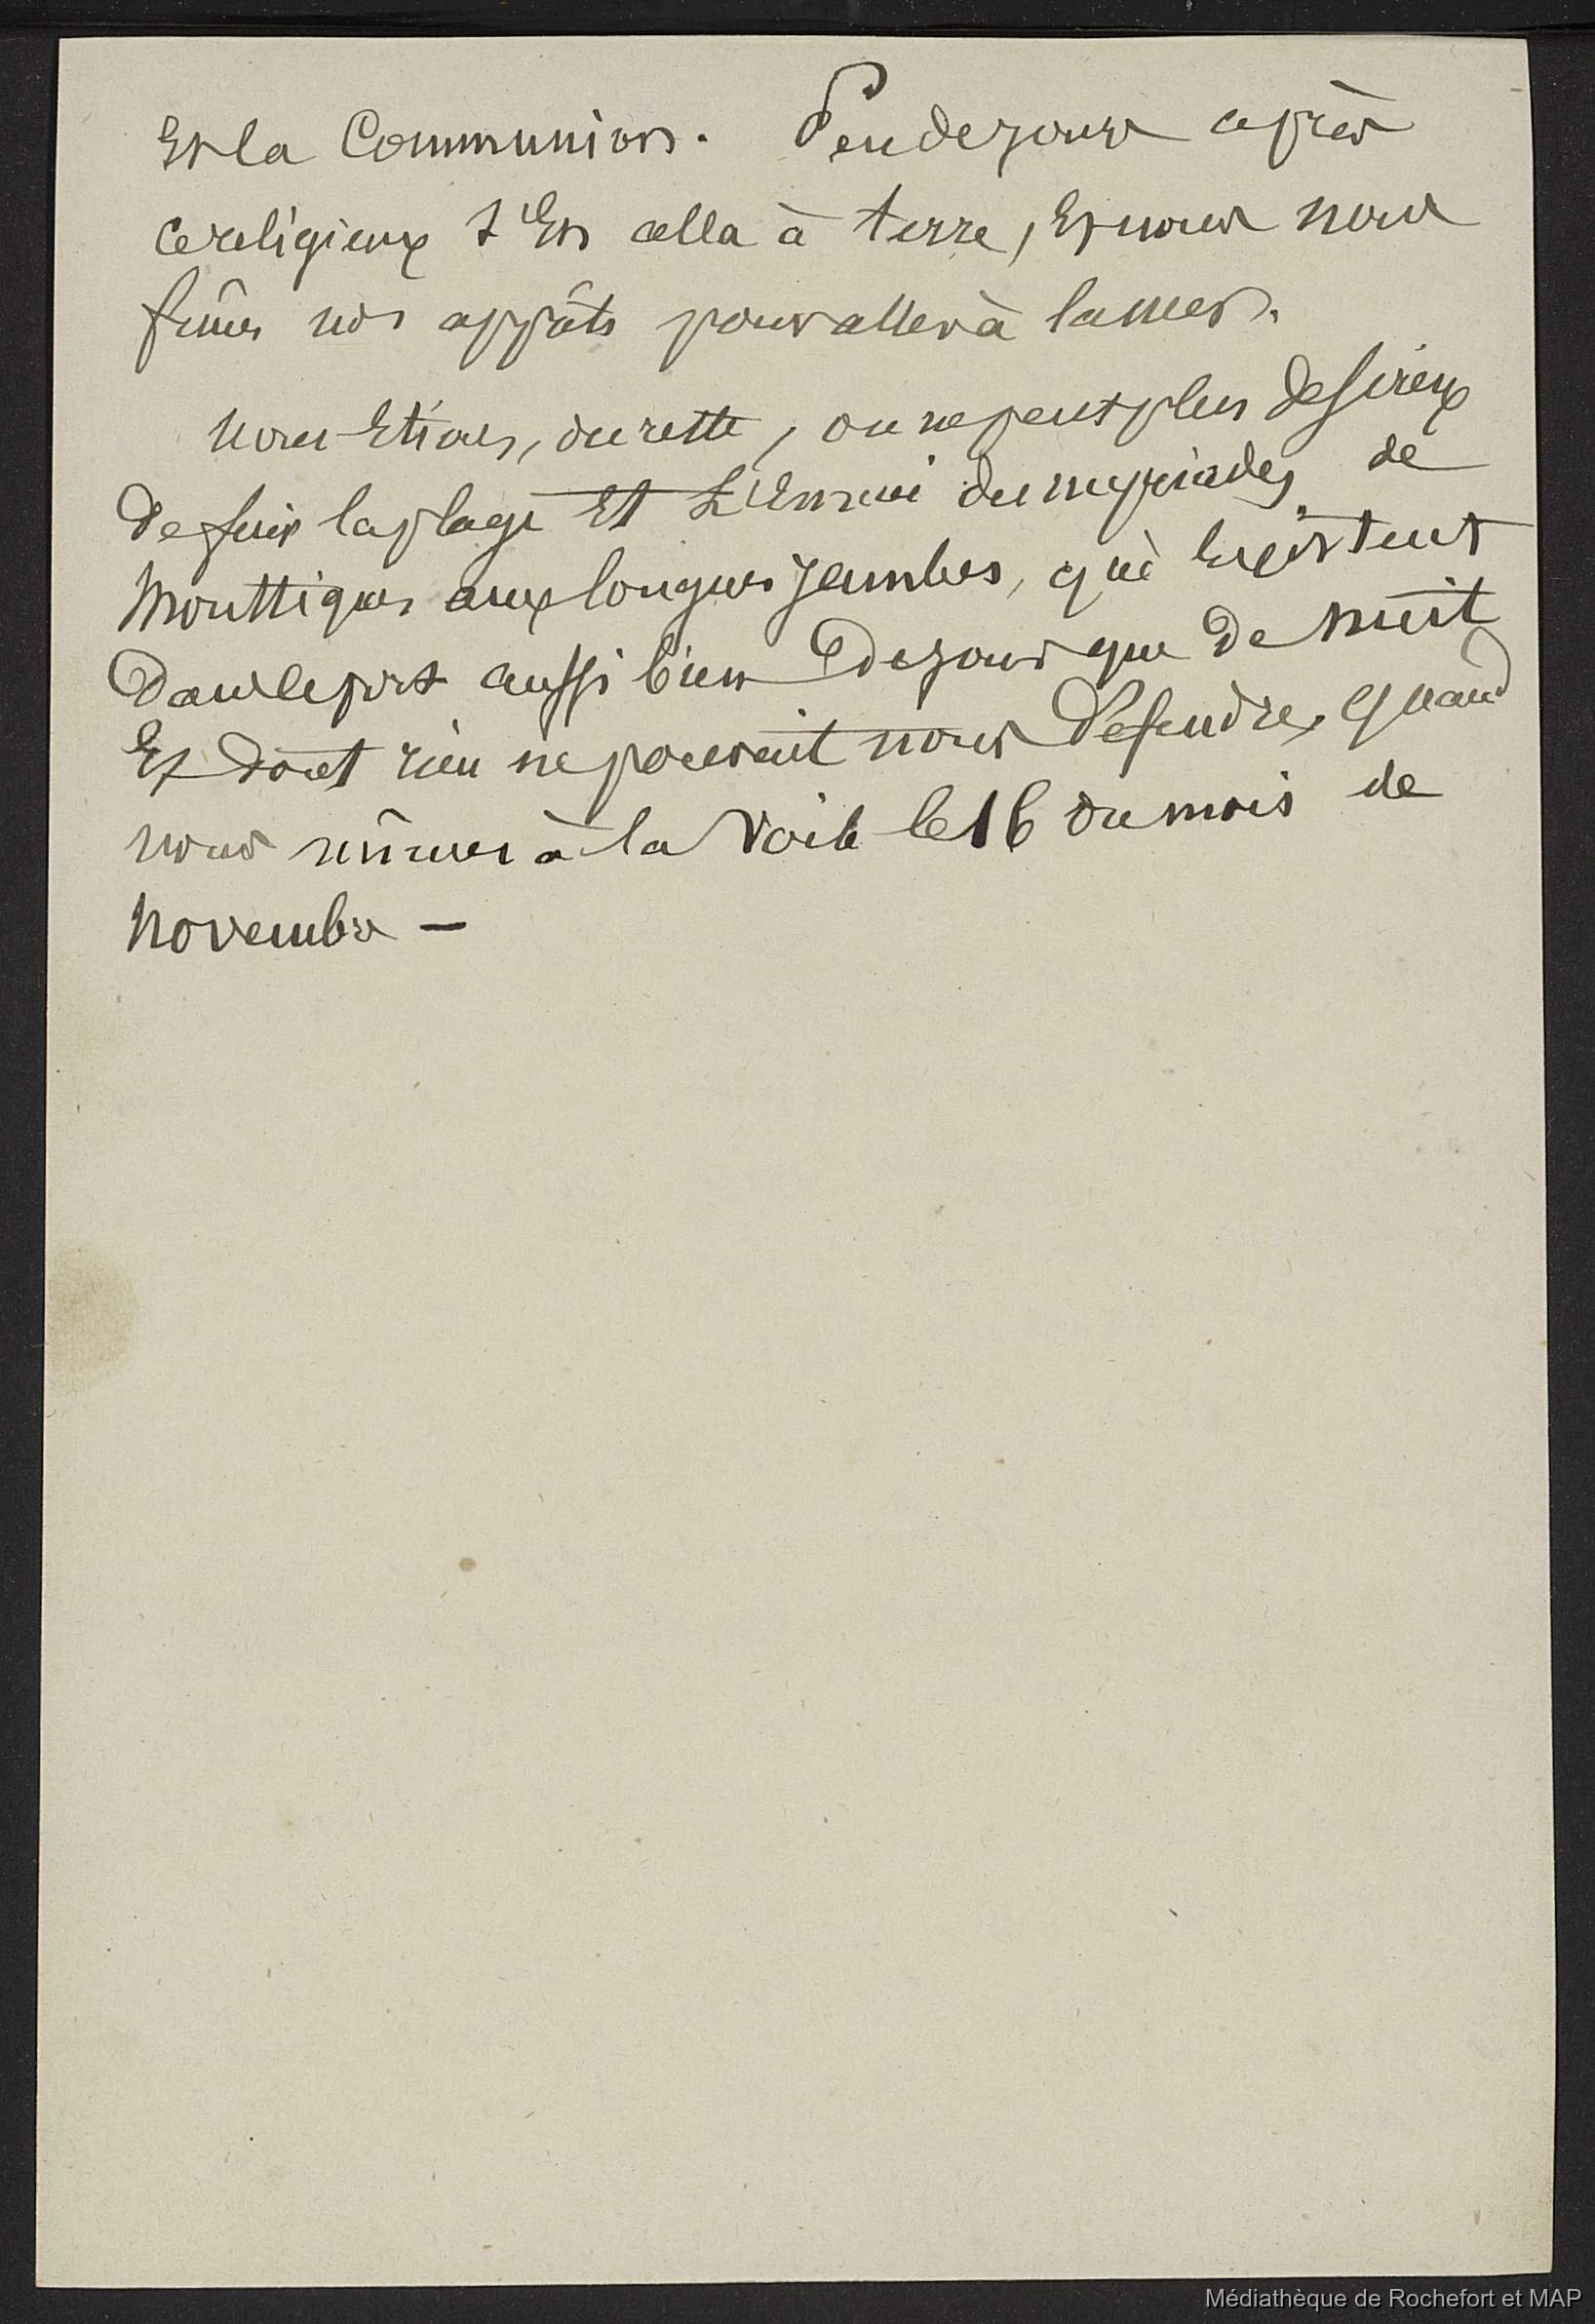 Et la Communion. Peu de jours après
ce religieux s'en alla à terre, Et nous nous
fîmes nos appâts pour aller à la mer.
Nous Etions, du reste, on ne peut plus desireux
de fuir la plage Et L'Ennui du myriades de
Moustiques aux longues jambes, qui Existent
dans le port aussi bien de jour que de nuit
Et dont rien ne pouvait nous défendre, quand
nous mîmes à la Voile le 16 du mois de
Novembre —
Médiathèque de Rochefort et MAP